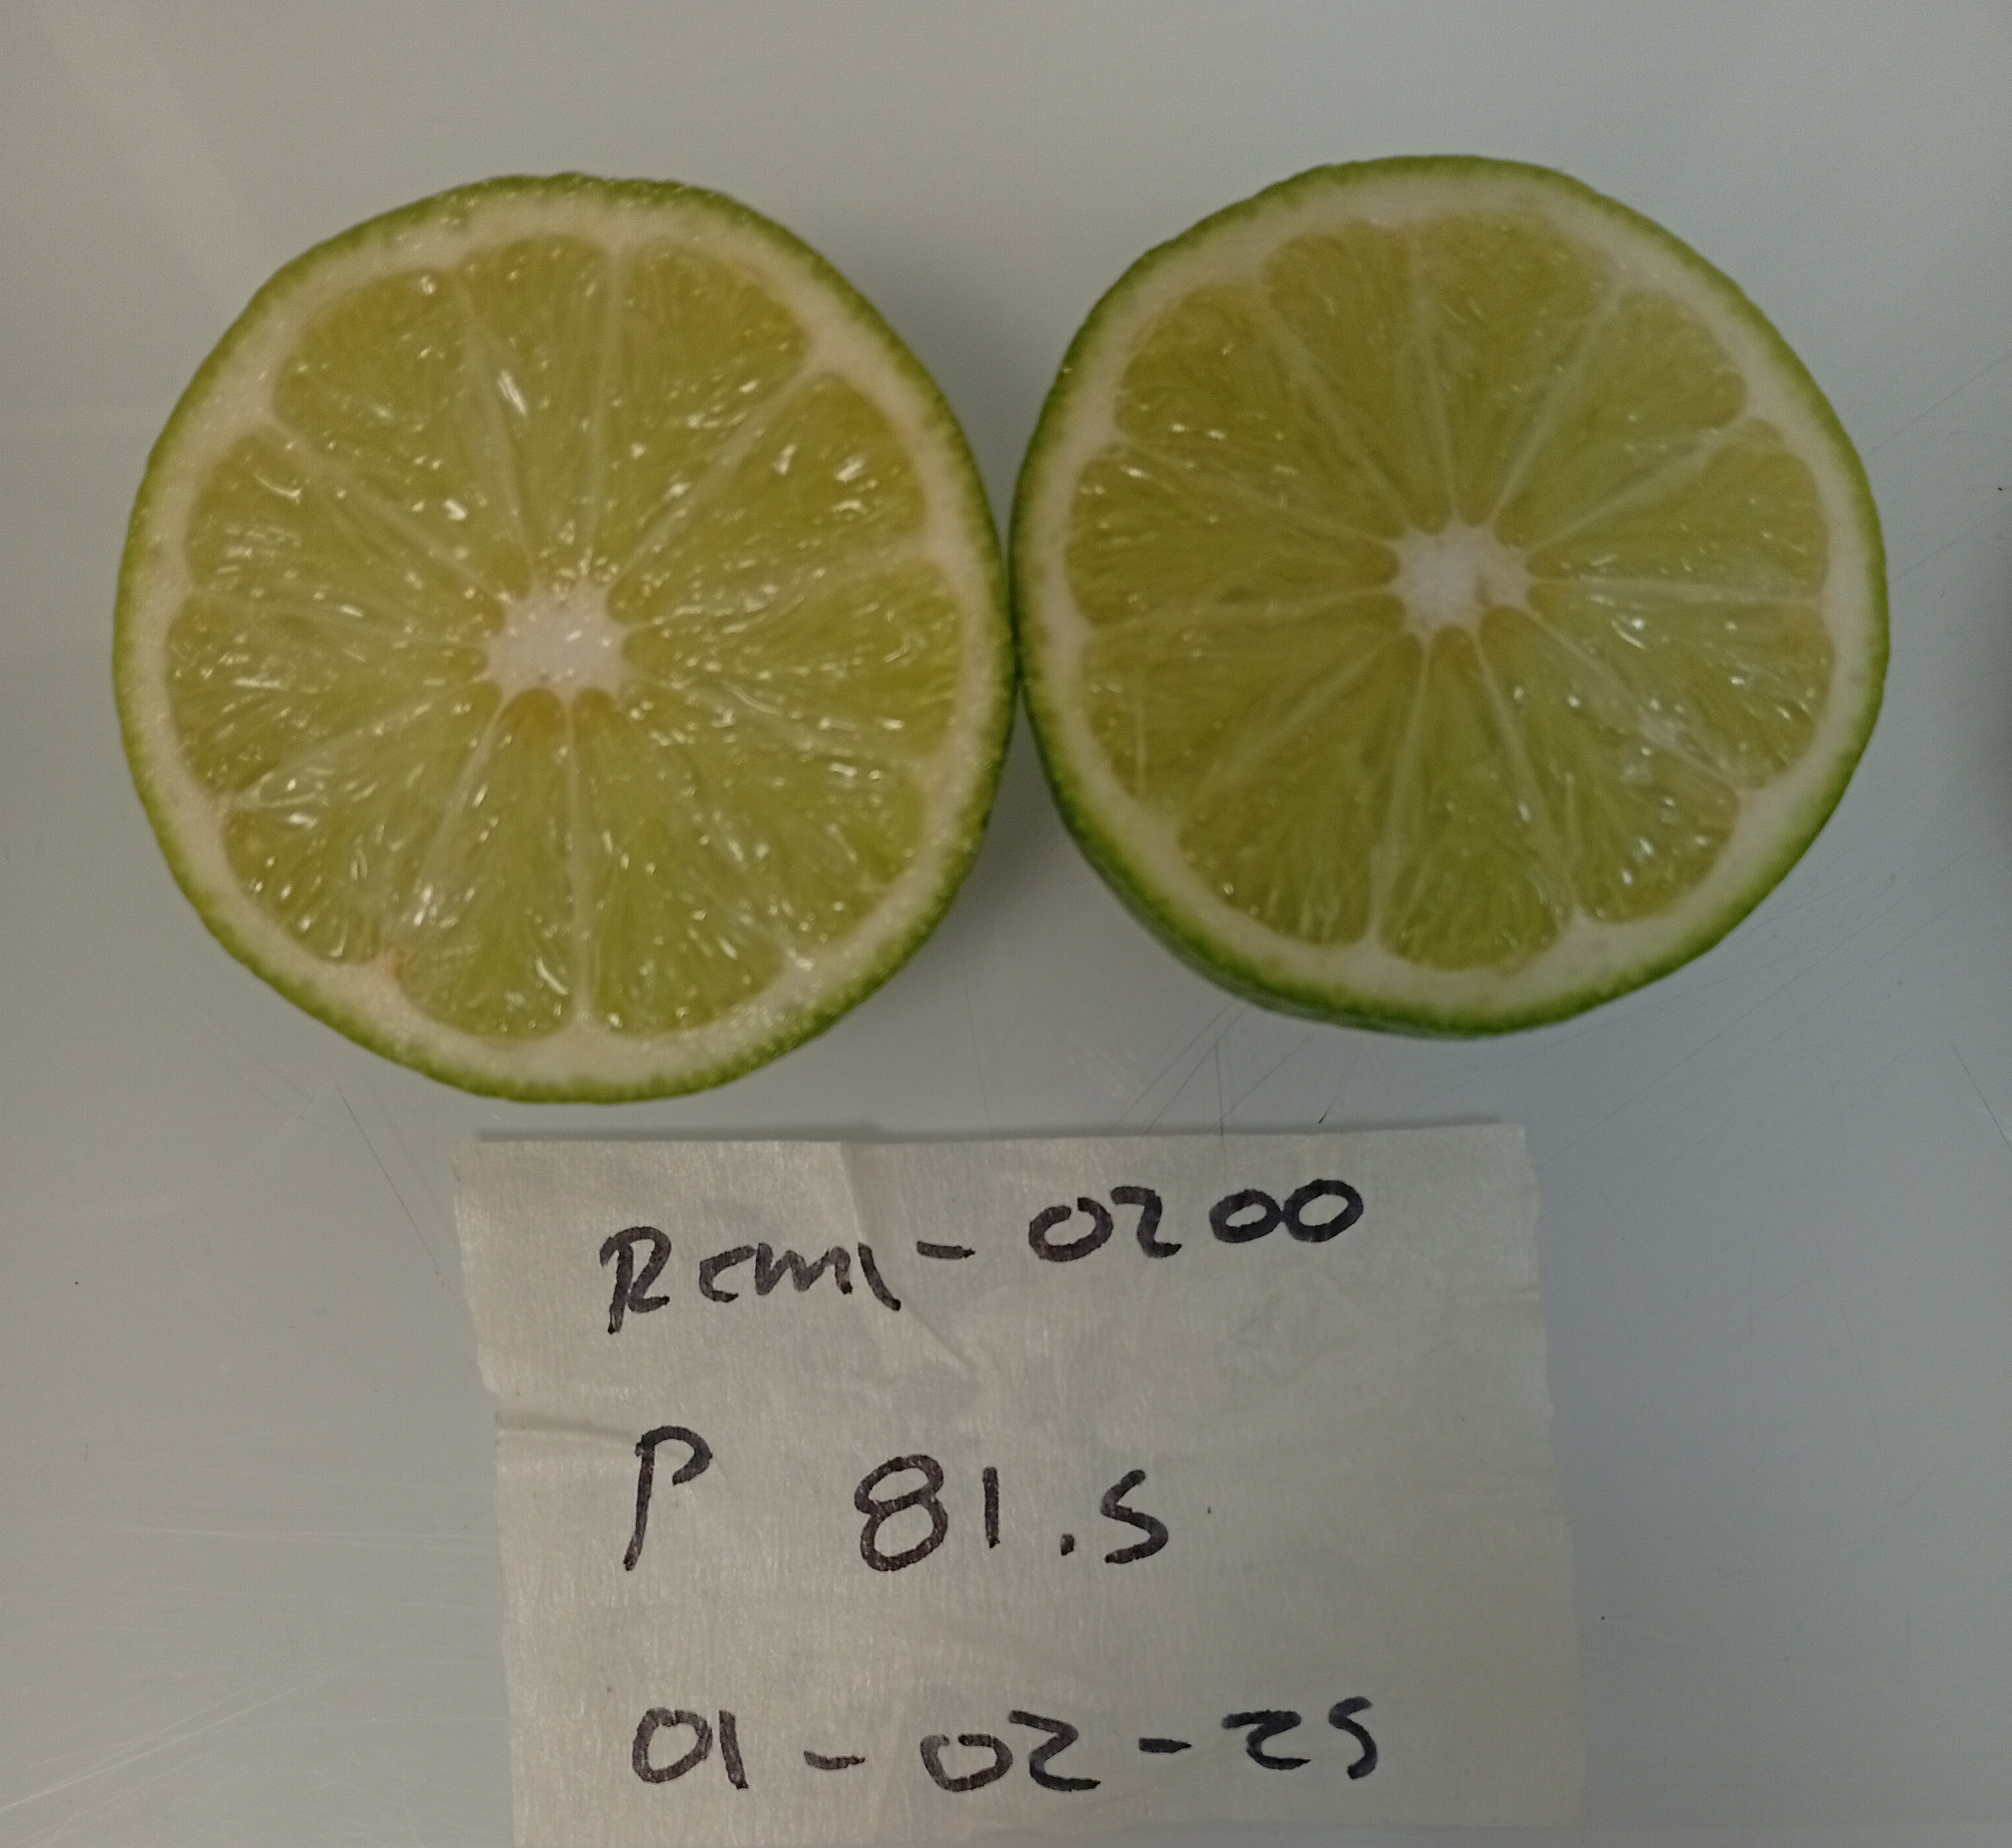 Remi-0200
P 81.5
01-02-25